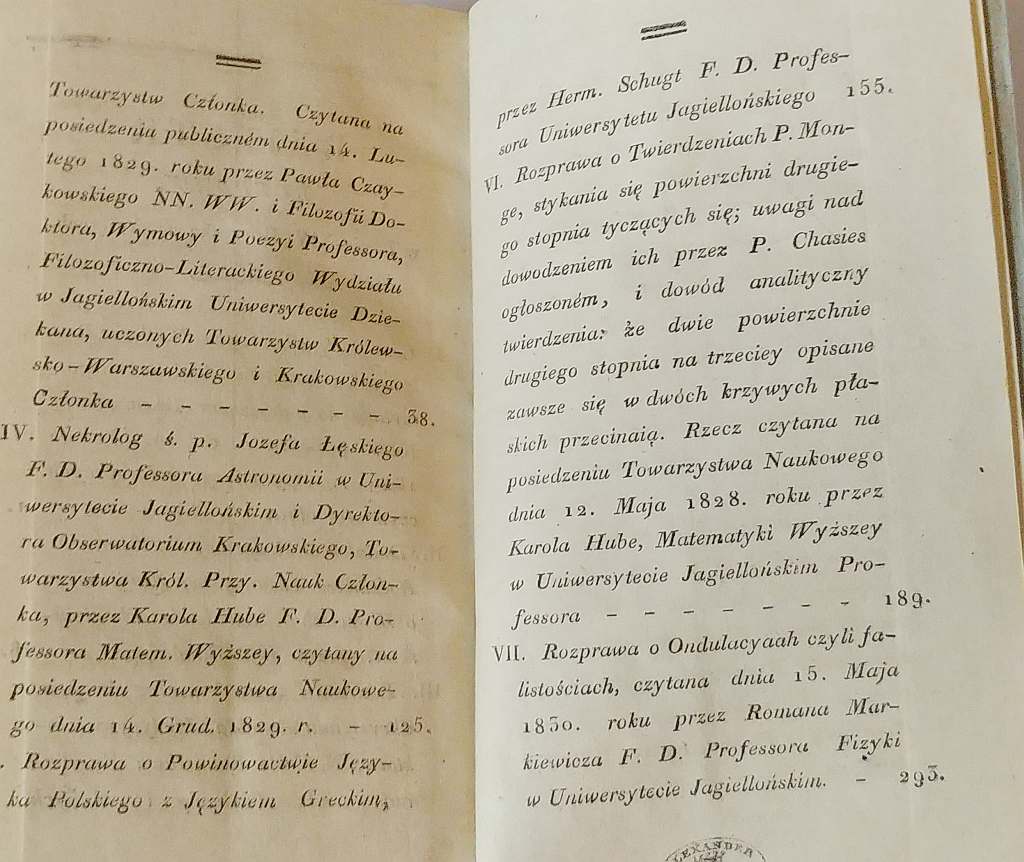 Towarzystw Członka. Czytana na
posiedzeniu publiczném dnia 14. Lu-
tego 1829. roku przez Pawła Czay-
kowskiego NN. WW. i Filozofii Do-
ktora, Wymowy i Poezyi Professora,
Filozoficzno-Literackiego Wydziału
w Jagiellońskim Uniwersytecie Dzie-
kana, uczonych Towarzystw Królew-
sko-Warszawskiego i Krakowskiego
Członka - - - - - - - 38.
IV. Nekrolog ś. p. Jozefa Łęskiego
F. D. Professora Astronomii w Uni-
wersytecie Jagiellońskim i Dyrekto-
ra Obserwatorium Krakowskiego, To-
warzystwa Król. Przy. Nauk Człon-
ka, przez Karola Hube F. D. Pro-
fessora Matem. Wyższey, czytany na
posiedzeniu Towarzystwa Naukowe-
go dnia 14. Grud. 1829. r. - 125.
. Rozprawa o Powinowactwie Języ-
ka Polskiego z Językiem Greckim,
przez Herm. Schugt F. D. Profes-
sora Uniwersytetu Jagiellońskiego 155.
VI. Rozprawa o Twierdzeniach P. Mon-
ge, stykania się powierzchni drugie-
go stopnia tyczących się; uwagi nad
dowodzeniem ich przez P. Chasies
ogłoszoném, i dowód analityczny
twierdzenia: że dwie powierzchnie
drugiego stopnia na trzeciey opisane
zawsze się w dwóch krzywych pła-
skich przecinaią. Rzecz czytana na
posiedzeniu Towarzystwa Naukowego
dnia 12. Maja 1828. roku przez
Karola Hube, Matematyki Wyższey
w Uniwersytecie Jagiellońskim Pro-
fessora - - - - - - - 189.
VII. Rozprawa o Ondulacyaah czyli fa-
listościach, czytana dnia 15. Maja
1830. roku przez Romana Mar-
kiewicza F. D. Professora Fizyki
w Uniwersytecie Jagiellońskim. - 293.